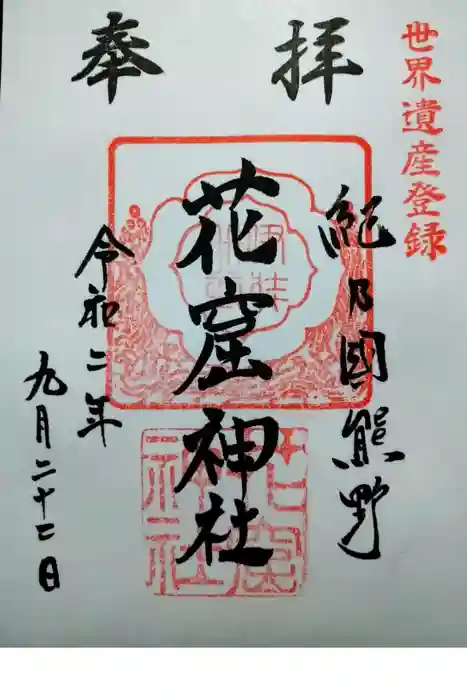 奉拝
世界遺産登録
紀乃國熊野
花窟神社
令和二年
九月二十二日
花窟神社